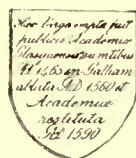 Hæc Virga empta fuit
publicis Academiæ
Glasguensis sumptibus
AD 1465 in Galliam
ablata AD 1560 et
Academiæ
restituta
AD 1590